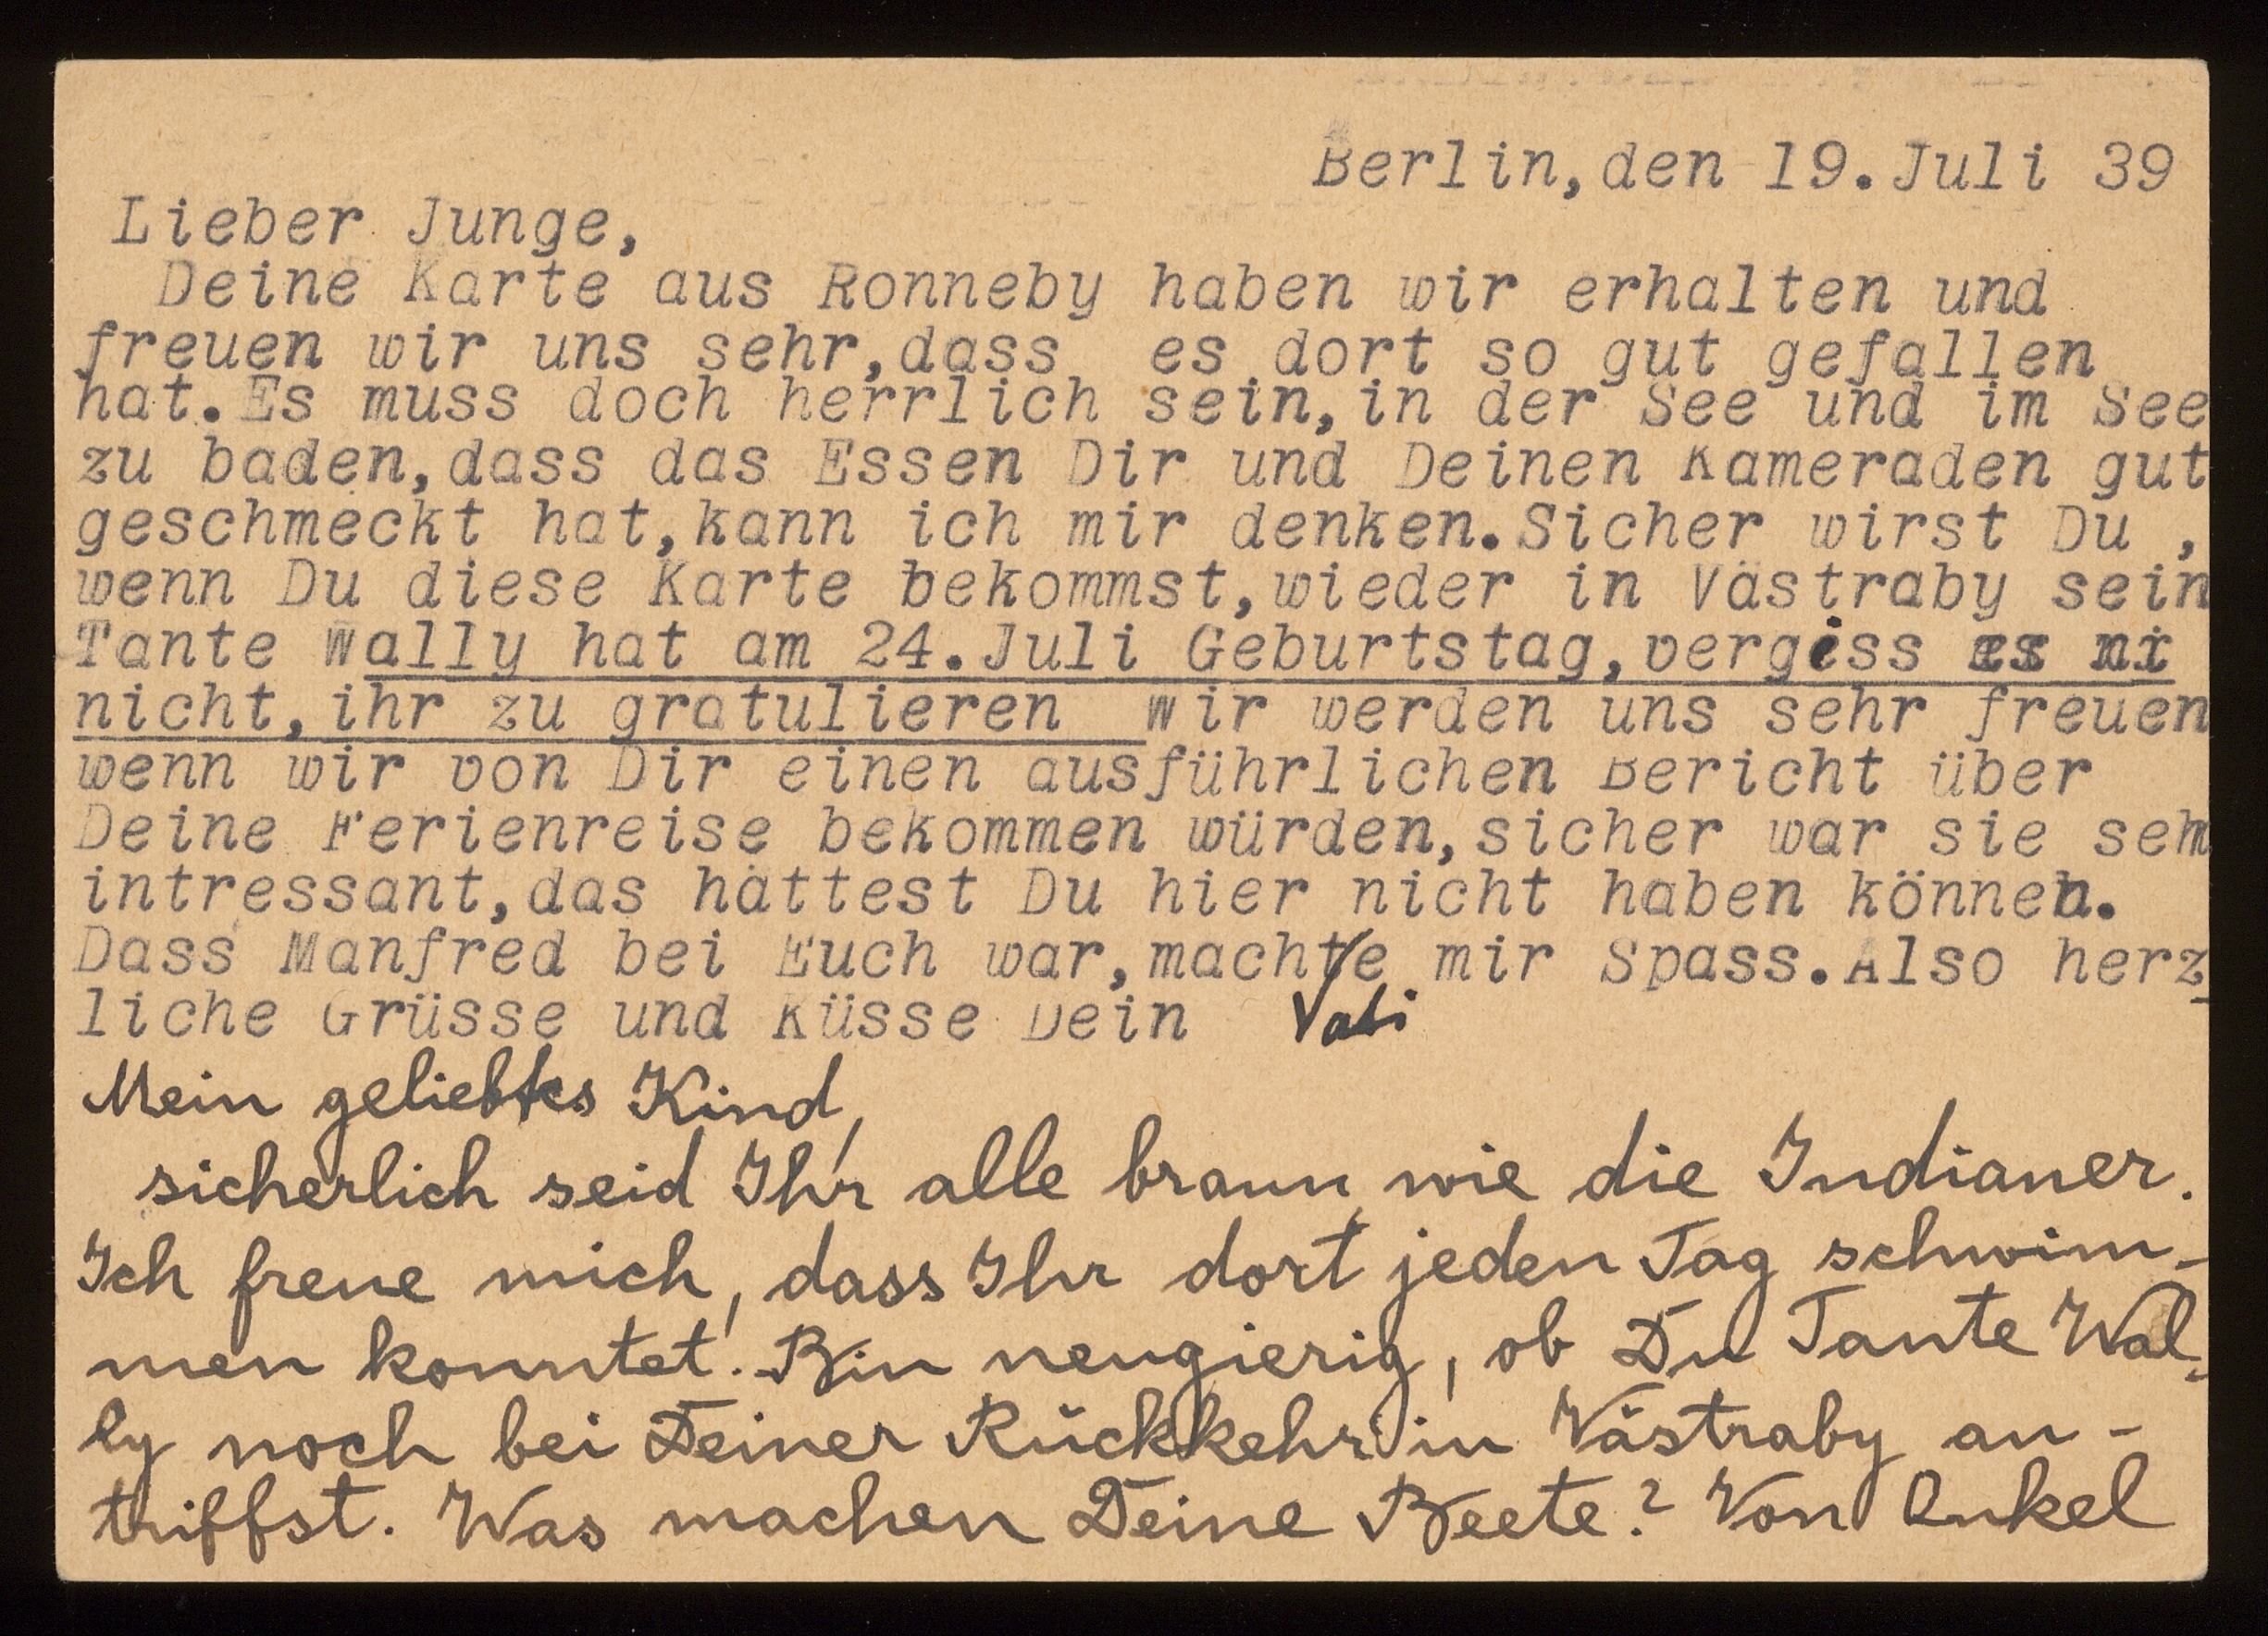 Berlin,den 19.Juli 39
Lieber Junge,
Deine Karte aus Ronneby haben wir erhalten und
freuen wir uns sehr,dass es dort so gut gefallen
hat.Es muss doch herrlich sein,in der See und im See
zu baden,dass das Essen Dir und Deinen Kameraden gut
geschmeckt hat,kann ich mir denken.Sicher wirst Du ,
wenn Du diese Karte bekommst,wieder in Västraby sein
Tante Wally hat am 24.Juli Geburtstag,vergiss es ni
nicht,ihr zu gratulieren Wir werden uns sehr freuen
wenn wir von Dir einen ausführlichen Bericht über
Deine Ferienreise bekommen würden,sicher war sie sehr
intressant,das hättest Du hier nicht haben können.
Dass Manfred bei Euch war,machte mir Spass.Also herz
liche Grüsse und Küsse Dein Vati
Mein geliebtes Kind,
sicherlich seid Ihr alle braun wie die Indianer.
Ich freue mich, dass Ihr dort jeden Tag schwim-
men konntet. Bin neugierig, ob Du Tante Wal-
ly noch bei Deiner Rückkehr in Västraby an-
triffst. Was machen Deine Beete? Von Onkel